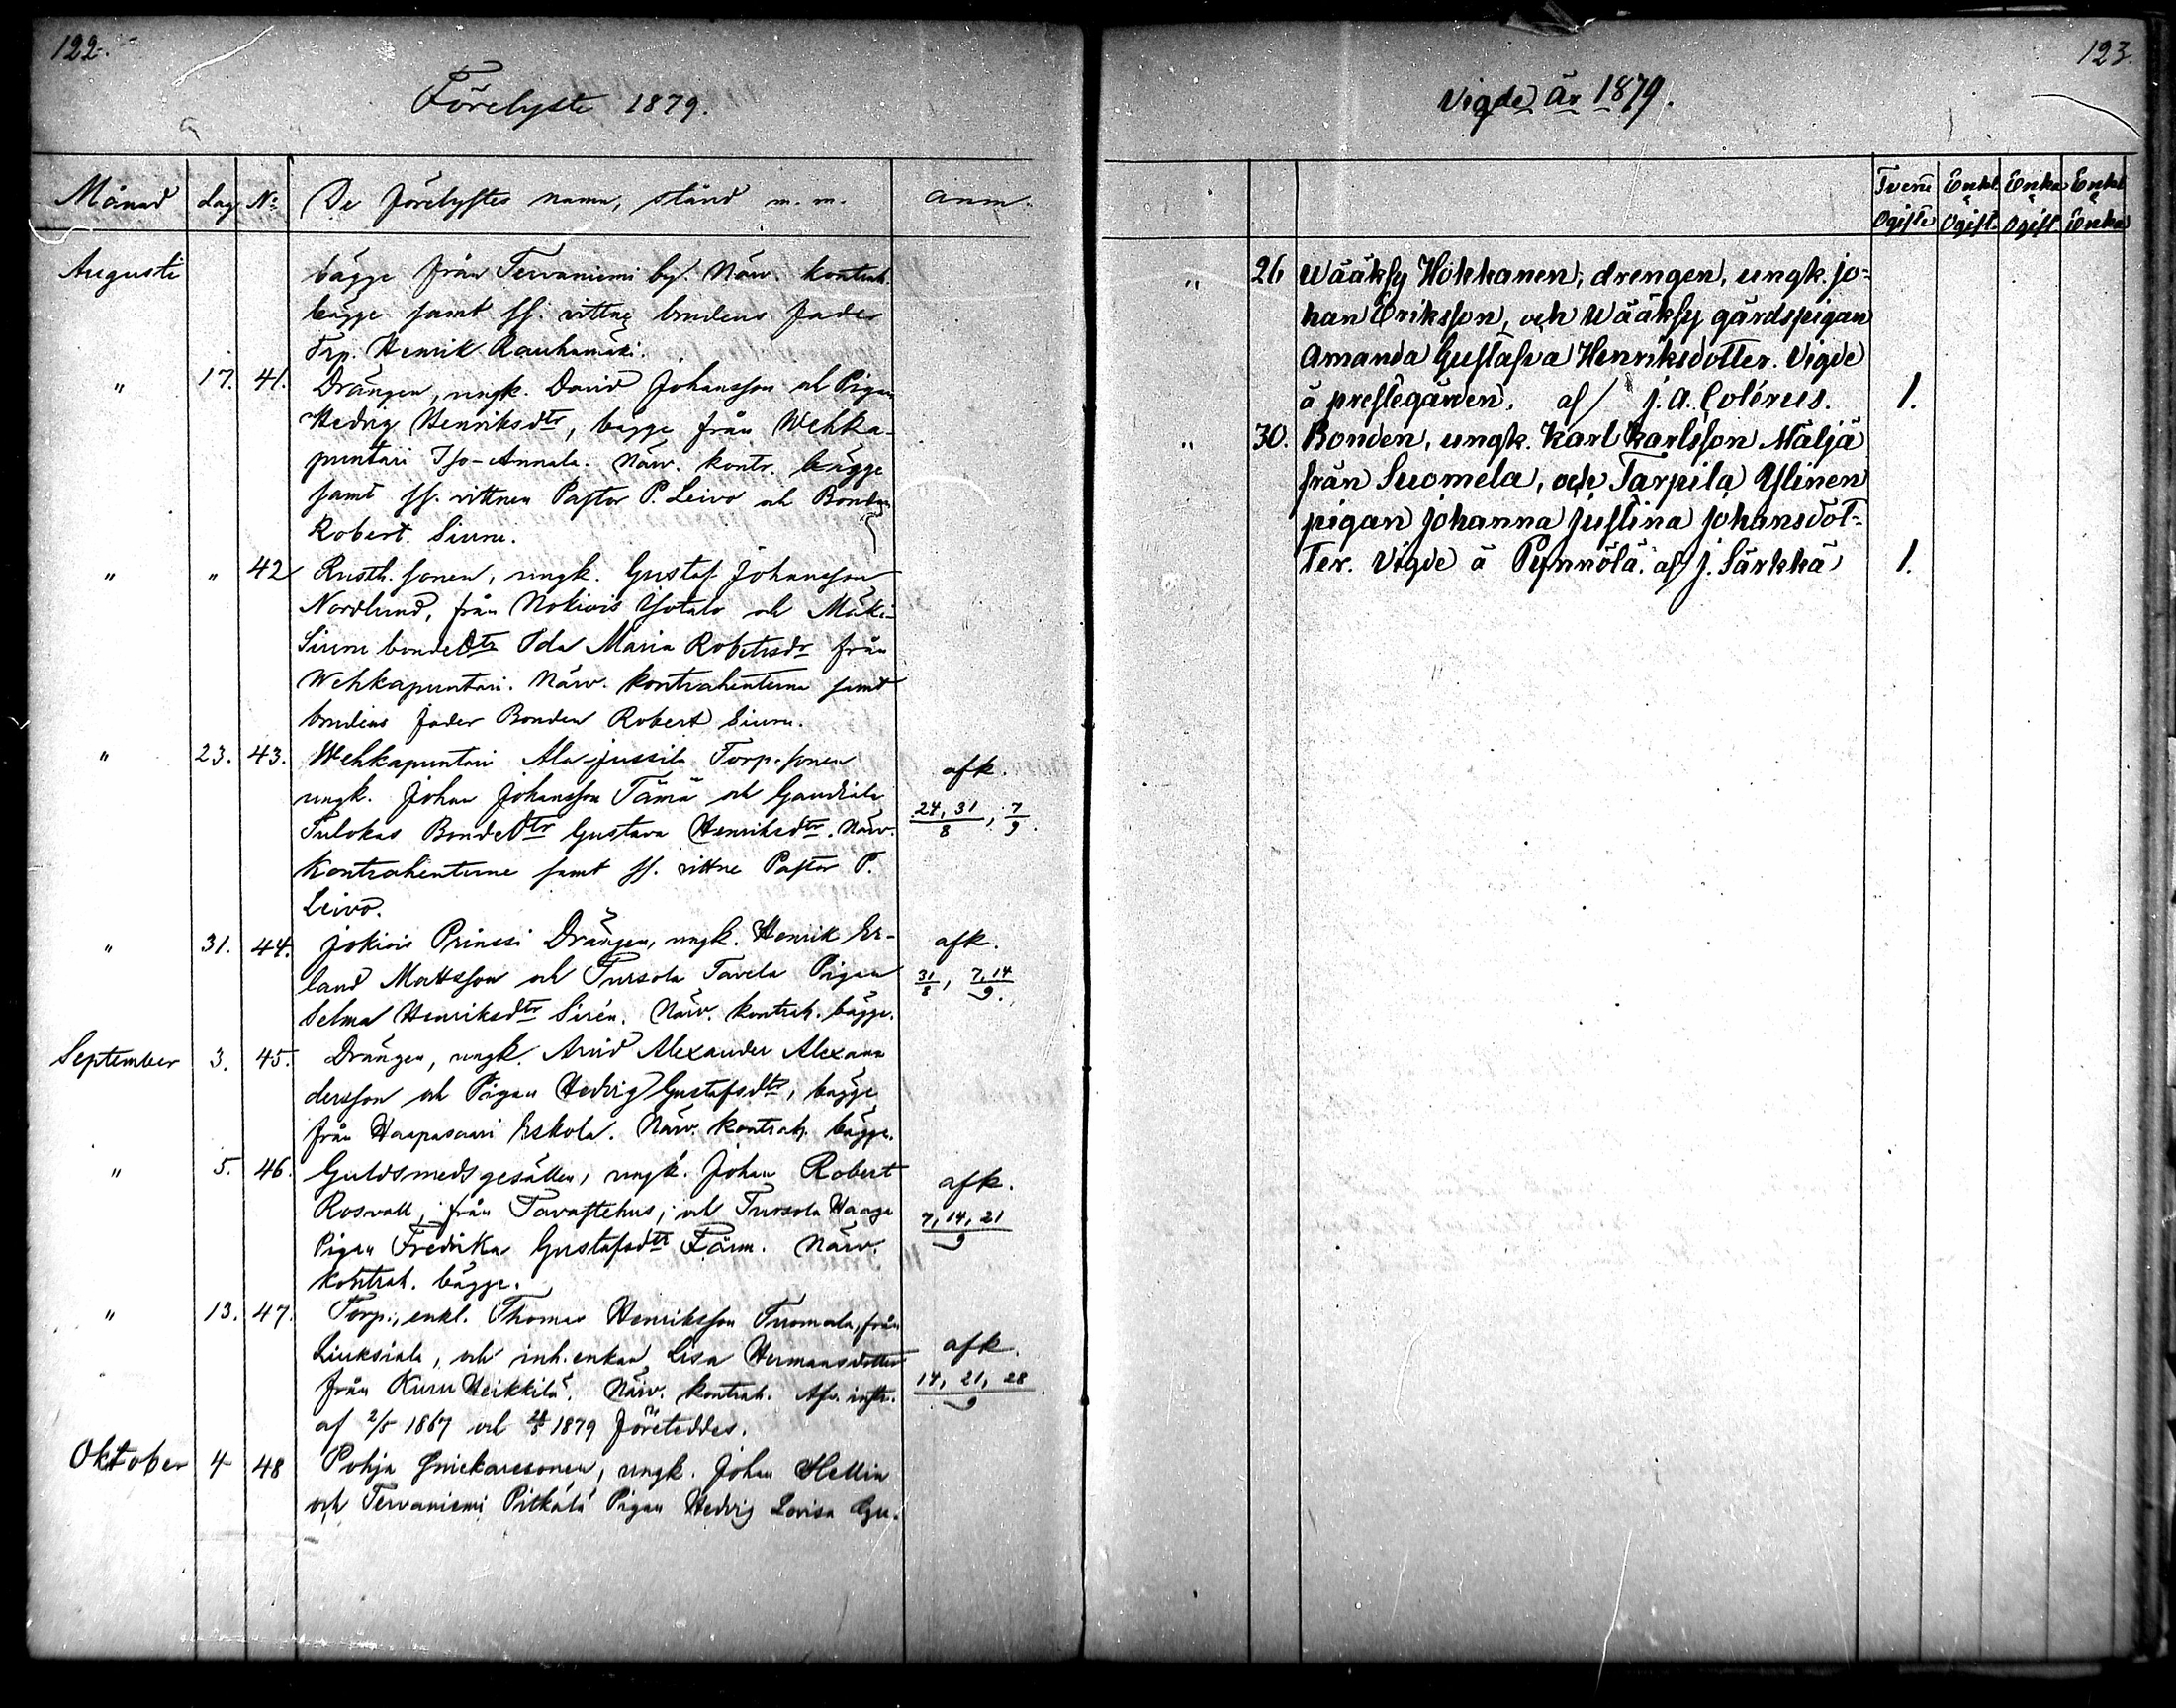 122.
Förelyste 1879.
Månad dag No De förelystes namn, stånd m. m. anm.
Augusti bägge från Tervaniemi by. Närv. kontrah.
bägge samt ss. vittne brudens fader
Trp. Henrik Rauhamäki.
" 17. 41. Drängen, ungk. David Johansson och Pigan
Hedvig Henriksdtr, bägge från Wehka-
puntari Iso-Annala. Närv. kontr. bägge
samt ss. vittnen Pastor P. Leivo och Bonden
Robert Siuru.
" " 42 Rusth. sonen, ungk. Gustaf Johansson
Nordlund, från Nokiois Yotalo och Mäki-
Siuru bondedtr Ida Maria Robertsdr från
Wehkapuntari. Närv. kontrahenterne samt
brudens fader Bonden Robert Siuru.
" 23. 43. Wehkapuntari Ala-jussila Torp. sonen
ungk. Johan Johansson Tämä och Gaudiala
Tulokas Bondedtr Gustava Henriksdtr. Närv.
Kontrahenterne samt ss. vittne Pastor P.
Leivo.
afk.
24, 31/8, 7/9.
" 31. 44. Jokiois Prinssi Drängen, ungk. Henrik Er-
land Mattsson och Tursola Tavela Pigan
Selma Henriksdtr Sirén. Närv. kontrah. bägge.
afk.
31/8, 7, 14/9.
September 3. 45. Drängen, ungk. Arvid Alexander Alexan
dersson och Pigan Hedvig Gustafsdtr, bägge
från Haapasaari Eskola. Närv. kontrah. bägge.
" 5. 46. Guldsmedsgesällen, ungk. Johan Robert
Rosvall, från Tavastehus, och Tursola Haage
Pigan Fredrika Gustafsdtr Färm. Närv.
kontrah. bägge.
afk.
7, 14, 21/9
" 13. 47. Torp., enkl. Thomas Henriksson Tuomala, från
Liuksiala, och inh. enkan Lisa Hermansdotter
från Kuru Heikkilä. Närv. kontrah. Afv. instr.
af 2/5 1867 och 1879 företeddes.
afk.
14, 21, 28/9.
Oktober 4 48 Pohja Snickaresonen, ungk. Johan Hellin
och Tervaniemi Pitkälä Pigan Hedvig Lovisa Gu-
123.
Vigde år 1879.
Tvenne Ogifte Enkl. o Ogift. Enka o Ogift Enkl o Enka
" 26 Wääksy Hokkanen, drengen, ungk. jo-
han Eriksson, och Wääksy gårdspigan
Amanda Gustafva Henriksdotter. Vigde
å prestegården. af J. A. Colérus. 1.
" 30. Bonden, ungk. Karl Karlsson Mäljä
från Suomela, och Tarpila Ylinen
pigan Johanna Justina Johansdot-
ter. Vigde å Pynnölä. af J. Särkkä 1.